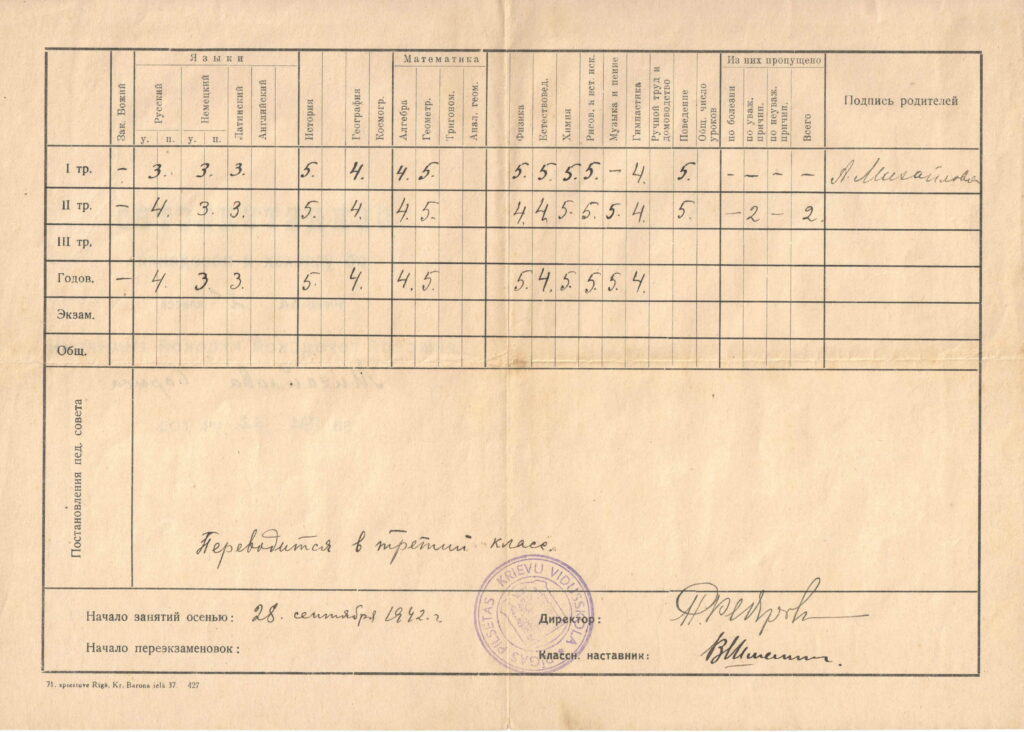 Языки Математика Из них пропущено
Зак. Божий Русский Немецкий Латинский Английский История География Космогр. Алгебра Геометр. Тригоном. Анал. геом. Физика Естествовед. Химия Рисов. и ист. иск. Музыка и пение Гимнастика Ручной труд и домоводство Поведение Общ. число уроков по болезни по уваж. причин. по неуваж. причин. Всего Подпись родителей
у. п. у. п.
I тр. – 3. 3. 3. 5. 4. 4. 5. 5. 5. 5. 5. – 4. 5. – – – – А. Михайлова
II тр. – 4. 3. 3. 5. 4. 4. 5. 4. 4. 5. 5. 5. 4. 5. – 2 – 2.
III тр.
Годов. – 4. 3. 3. 5. 4. 4. 5. 5. 4. 5. 5. 5. 4.
Экзам.
Общ.
Постановления пед. совета
Переводится в третий класс.
Начало занятий осенью: 28. сентября 1942. г
Директор:
Начало переэкзаменовок:
Классн. наставник:
RĪGAS PILSĒTAS KRIEVU VIDUSSKOLA
71. spiestuve Rīgā, Kr. Barona ielā 37. 427